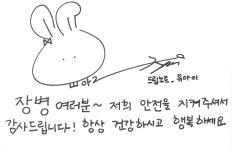 드림노트 - 유아이
장병 여러분~ 저희 안전을 지켜주셔서
감사드립니다! 항상 건강하시고 행복하세요